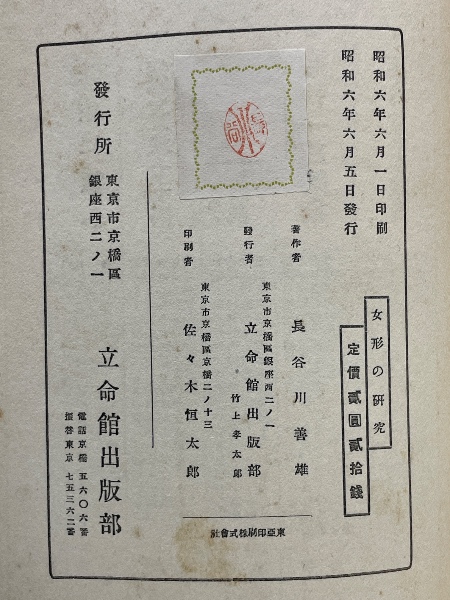 昭和六年六月一日印刷
昭和六年六月五日發行
女形の研究
定價貳圓貳拾錢
著作者
長谷川善雄
發行者
東京市京橋區銀座西二ノ一
立命館出版部
竹上孝太郎
印刷者
東京市京橋區京橋二ノ十三
佐々木恒太郎
東亞印刷株式會社
發行所
東京市京橋區
銀座西二ノ一
立命館出版部
電話京橋 五六〇六番
振替東京 七五三六二番